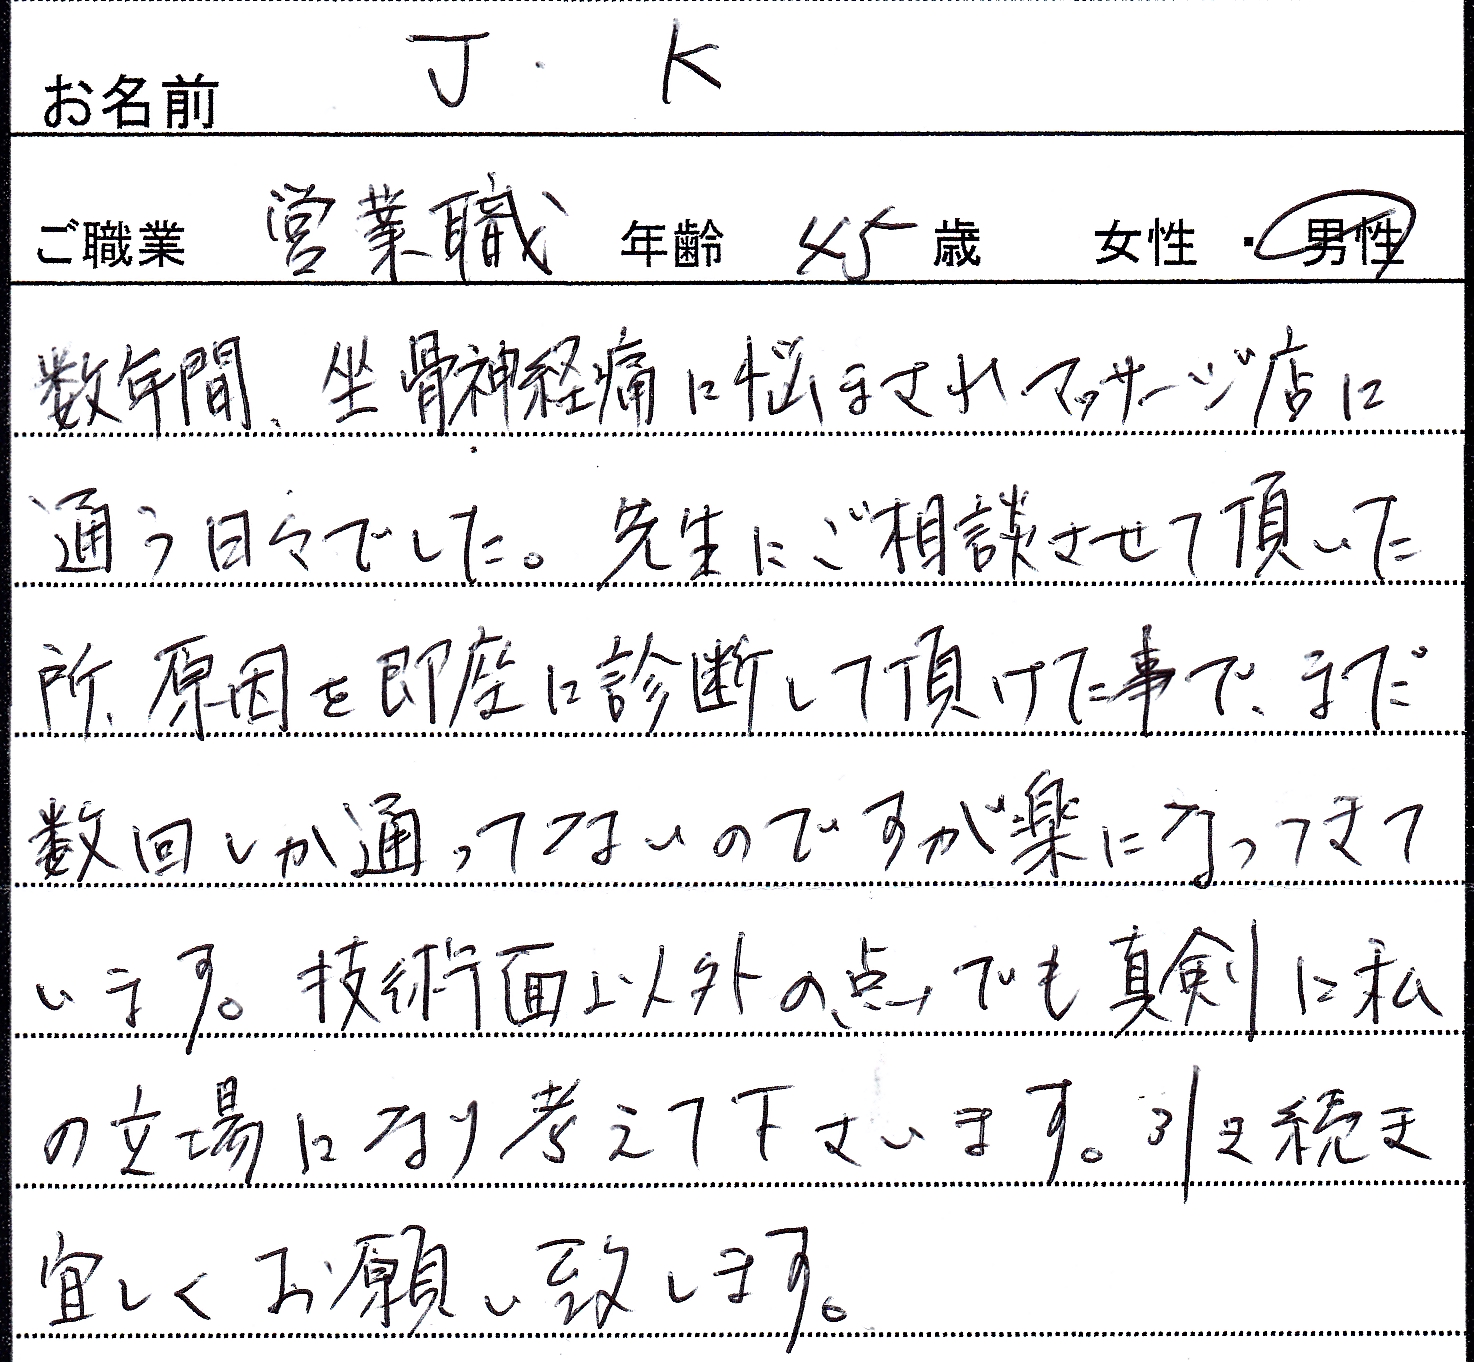 お名前 J. K
ご職業 営業職 年齢 45 歳 女性・男性
数年間、坐骨神経痛に悩まされマッサージ店に
通う日々でした。先生にご相談させて頂いた
所、原因を即座に診断して頂けた事で、まだ
数回しか通ってないのですが楽になってきて
います。技術面以外の点でも真剣に私
の立場になり考えて下さいます。引き続き
宜しくお願い致します。